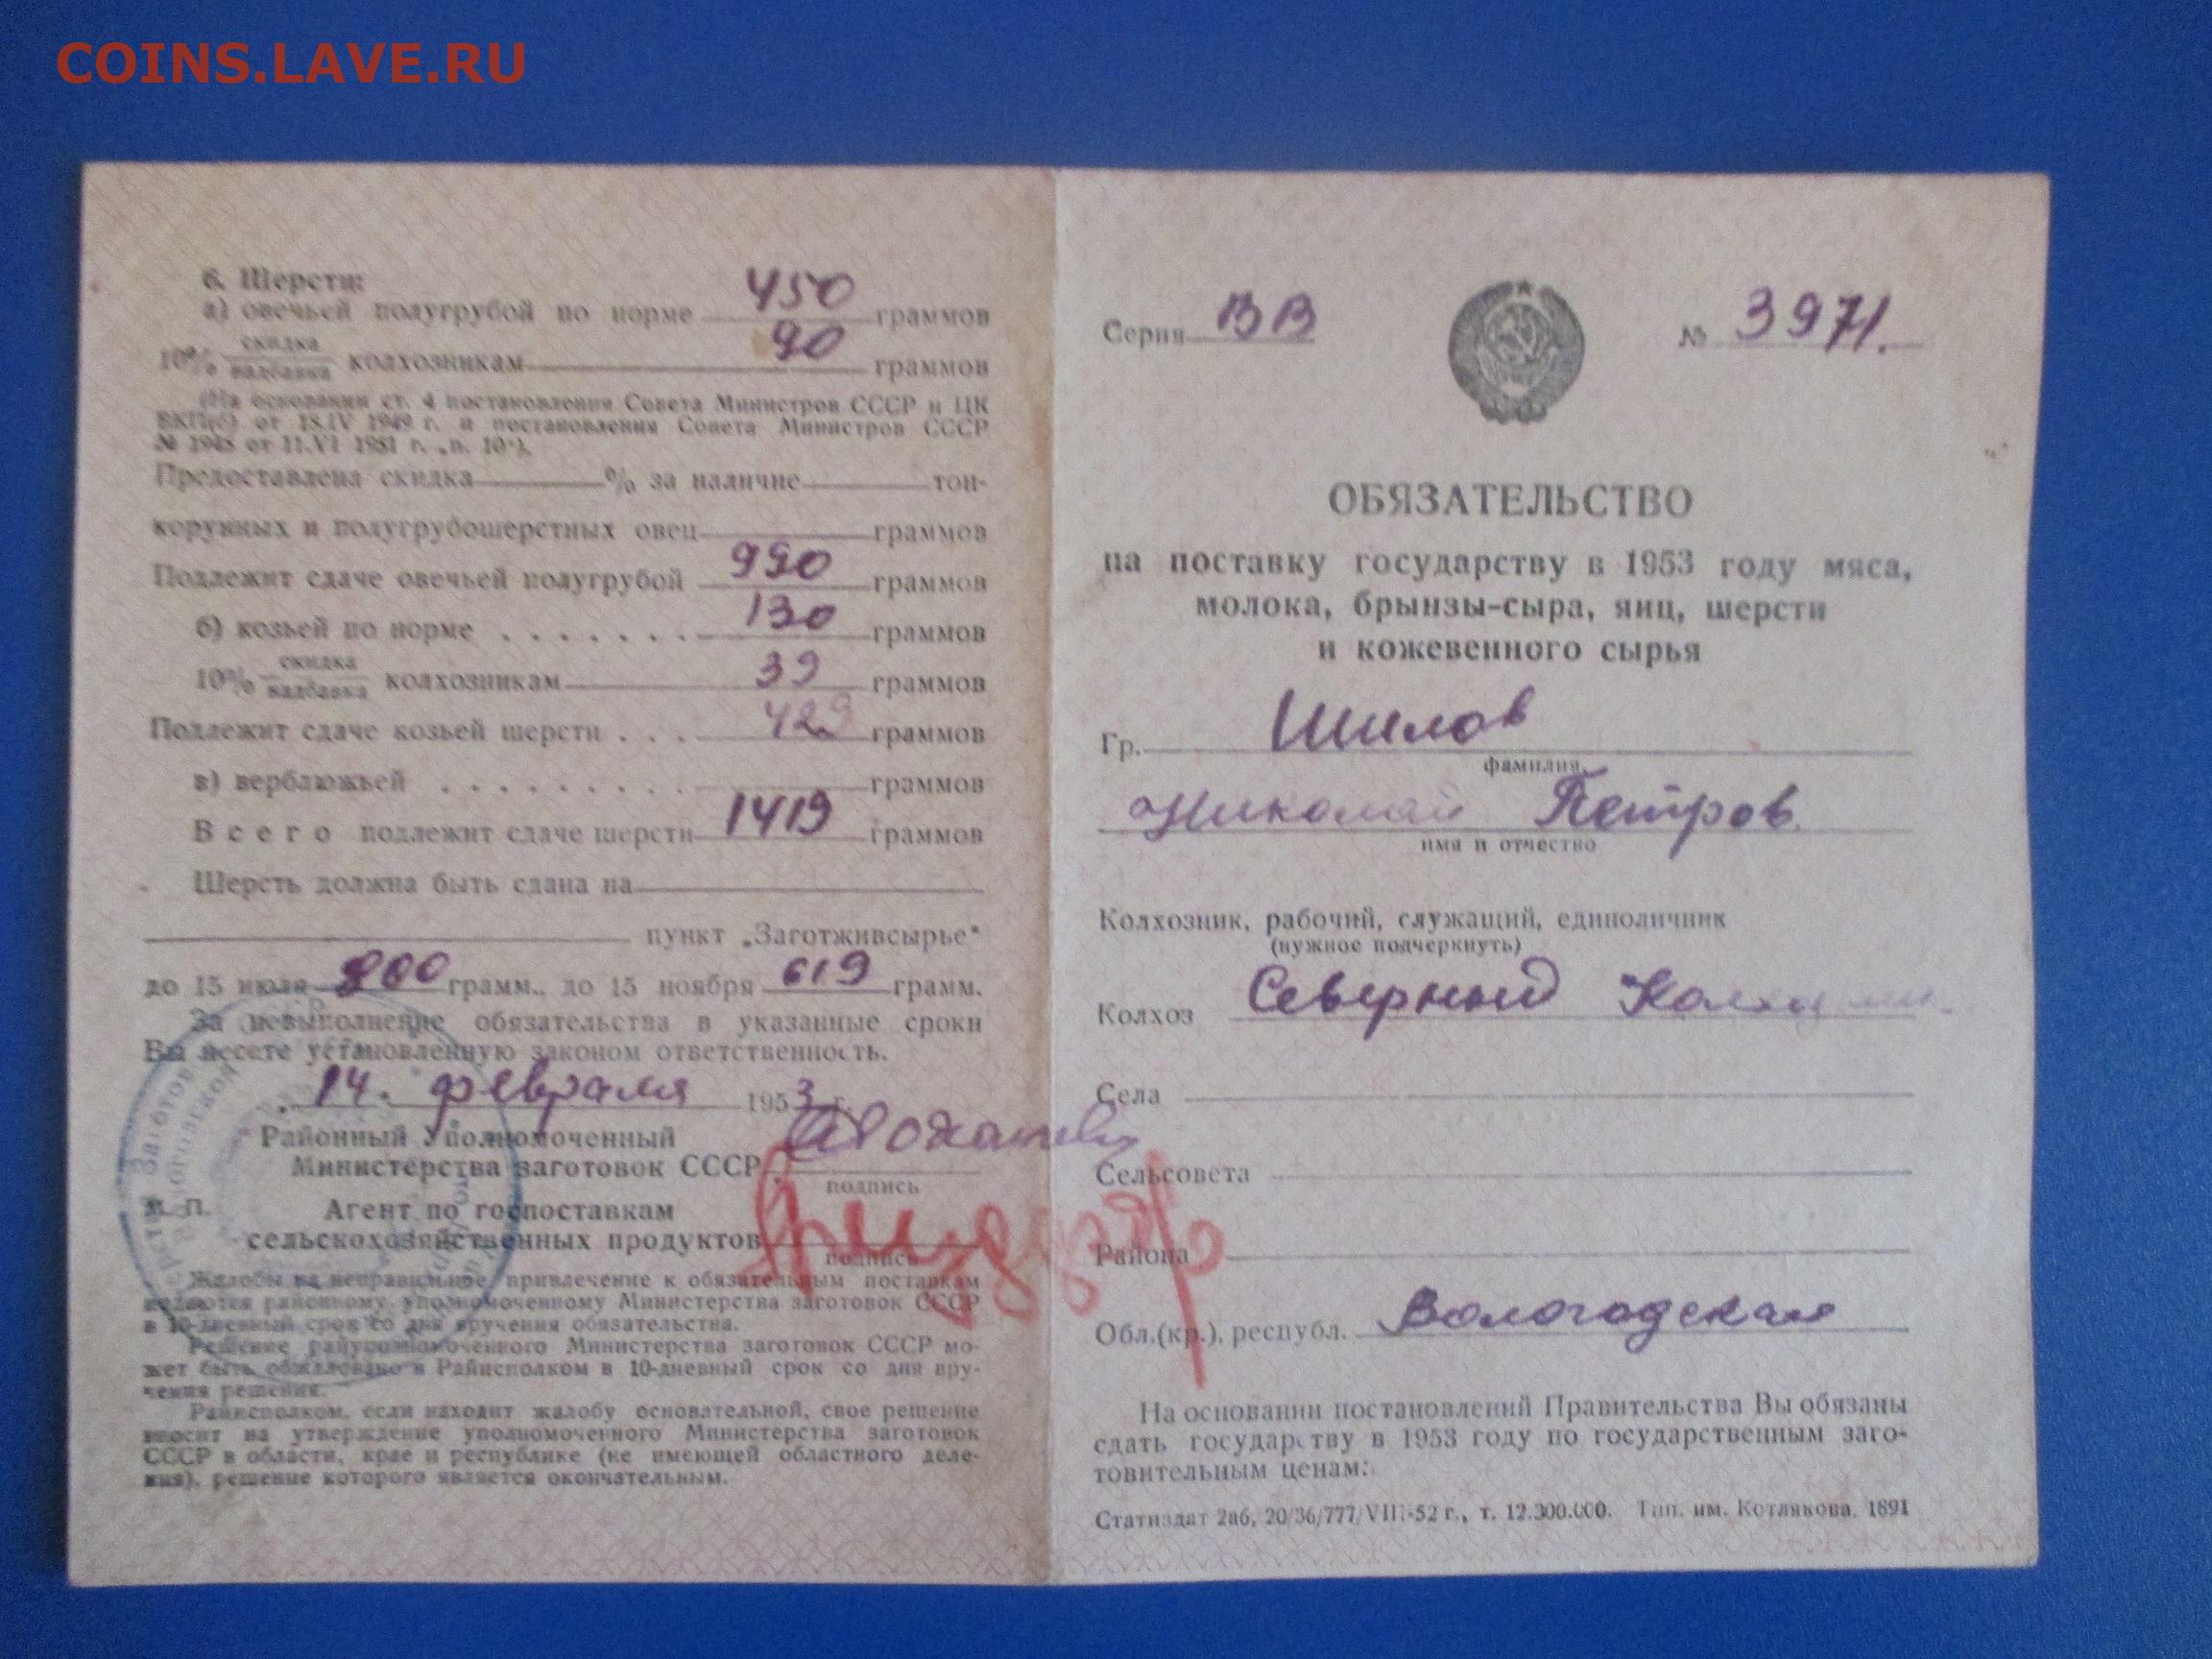 COINS.LAVE.RU
6. Шерсти:
а) овечьей полугрубой по норме 450 граммов
10% скидка
надбавка колхозникам 90 граммов
(На основании ст. 4 постановления Совета Министров СССР и ЦК
ВКП(б) от 18.IV 1949 г. и постановления Совета Министров СССР
№ 1948 от 11.VI 1951 г. „п. 10“).
Предоставлена скидка % за наличие тон-
корунных и полугрубошерстных овец граммов
Подлежит сдаче овечьей полугрубой 990 граммов
б) козьей по норме . . . . . . . 130 граммов
10% скидка
надбавка колхозникам 39 граммов
Подлежит сдаче козьей шерсти . . . 429 граммов
в) верблюжьей . . . . . . . . . граммов
Всего подлежит сдаче шерсти 1419 граммов
Шерсть должна быть сдана на
пункт „Заготживсырье“
до 15 июля 800 грамм., до 15 ноября 619 грамм.
За невыполнение обязательства в указанные сроки
Вы несете установленную законом ответственность.
14. февраля 1953 г.
Районный Уполномоченный
Министерства заготовок СССР
подпись
М. П. Агент по госпоставкам
сельскохозяйственных продуктов
подпись
Жалобы на неправильное привлечение к обязательным поставкам
подаются районному уполномоченному Министерства заготовок СССР
в 10-дневный срок со дня вручения обязательства.
Решение райуполномоченного Министерства заготовок СССР мо-
жет быть обжаловано в Райисполком в 10-дневный срок со дня вру-
чения решения.
Райисполком, если находит жалобу основательной, свое решение
вносит на утверждение уполномоченного Министерства заготовок
СССР в области, крае и республике (не имеющей областного деле-
ния), решение которого является окончательным.
Серия ВВ № 3971.
ОБЯЗАТЕЛЬСТВО
на поставку государству в 1953 году мяса,
молока, брынзы-сыра, яиц, шерсти
и кожевенного сырья
Гр. Шилов
фамилия
Николай Петров.
имя и отчество
Колхозник, рабочий, служащий, единоличник
(нужное подчеркнуть)
Колхоз Северный
Села
Сельсовета
Района
Обл.(кр.), республ. Вологодская
На основании постановлений Правительства Вы обязаны
сдать государству в 1953 году по государственным заго-
товительным ценам:
Статиздат 2аб, 20/36/777/VIII-52 г., т. 12.300.000. Тип. им. Котлякова. 1891